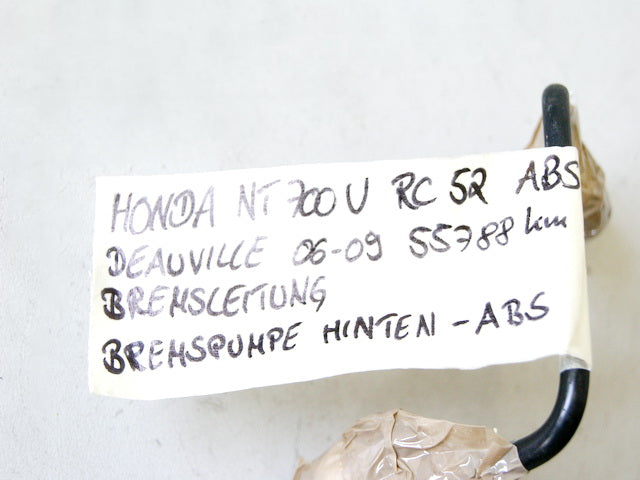 HONDA NT 700 V RC 52 ABS
DEAUVILLE 06-09 55788 km
BREMSLEITUNG
BREMSPUMPE HINTEN - ABS